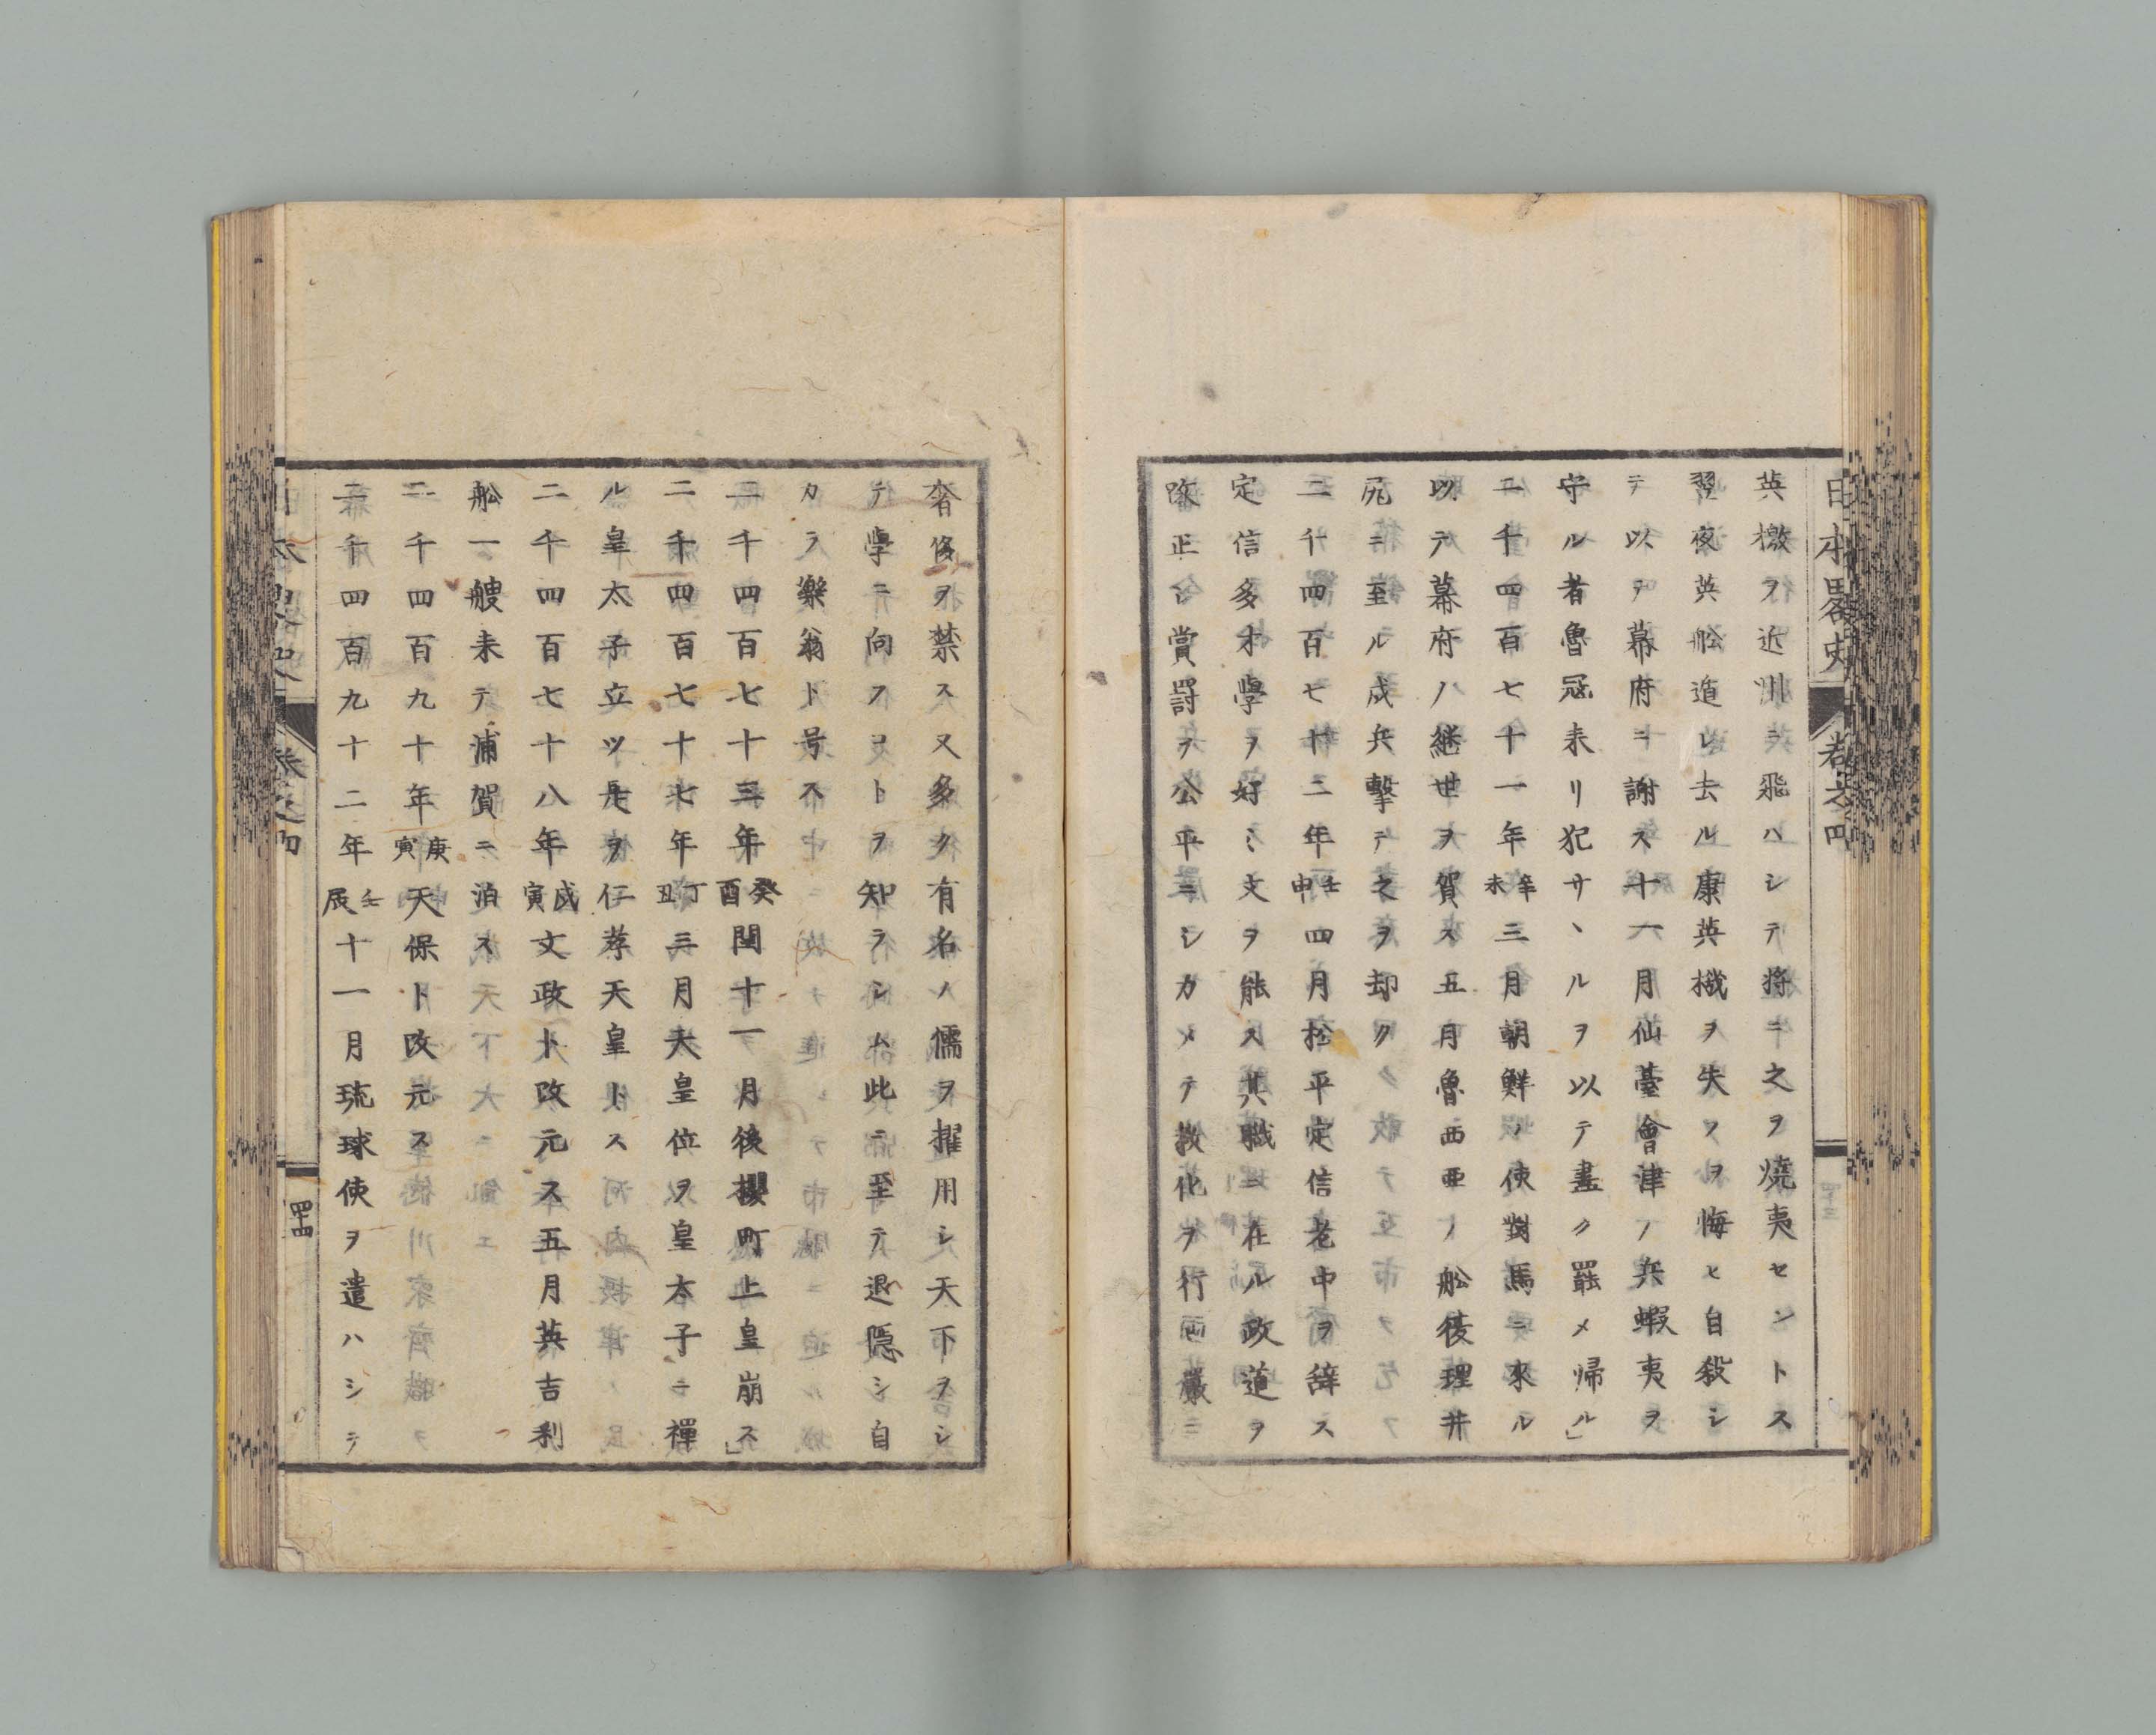 日本畧史 卷之四
英檄ヲ近州ニ飛ハシテ将ニ之ヲ燒夷セントス
翌夜英舩遁レ去ル康英機ヲ失フヲ悔ヒ自殺シ
テ以テ幕府ニ謝ス十一月仙臺會津ノ兵蝦夷ヲ
守ル者魯冦来リ犯サヽルヲ以テ盡ク罷メ帰ル」
二千四百七十一年辛未三月朝鮮ノ使對馬ニ來ル
以テ幕府ノ継世ヲ賀ス五月魯西亜ノ舩蕧理井
尻ニ至ル戍兵擊テ之ヲ却ク
二千四百七十二年壬申四月松平定信老中ヲ辭ス
定信多才學ヲ好ミ文ヲ能ス其職ニ在ル政道ヲ
改正シ賞罸ヲ公平ニシカメテ教化ヲ行ヒ嚴ニ
奢侈ヲ禁ス又多ク有名ノ儒ヲ擢用シ天下ヲシ
テ學ニ向フヿトヲ知ラシム此ニ至テ退隠シ自
カラ樂翁ト号ス
二千四百七十三年癸酉閏十一月後櫻町上皇崩ス」
二千四百七十七年丁丑三月天皇位ヲ皇太子ニ禪
ル皇太子立ツ是ヲ仁孝天皇トス
二千四百七十八年戊寅文政ト改元ス五月英吉利
舩一艘来テ浦賀ニ泊ス
二千四百九十年庚寅天保ト改元ス
二千四百九十二年壬辰十一月琉球使ヲ遣ハシテ
日本畧史 卷之四 四十四